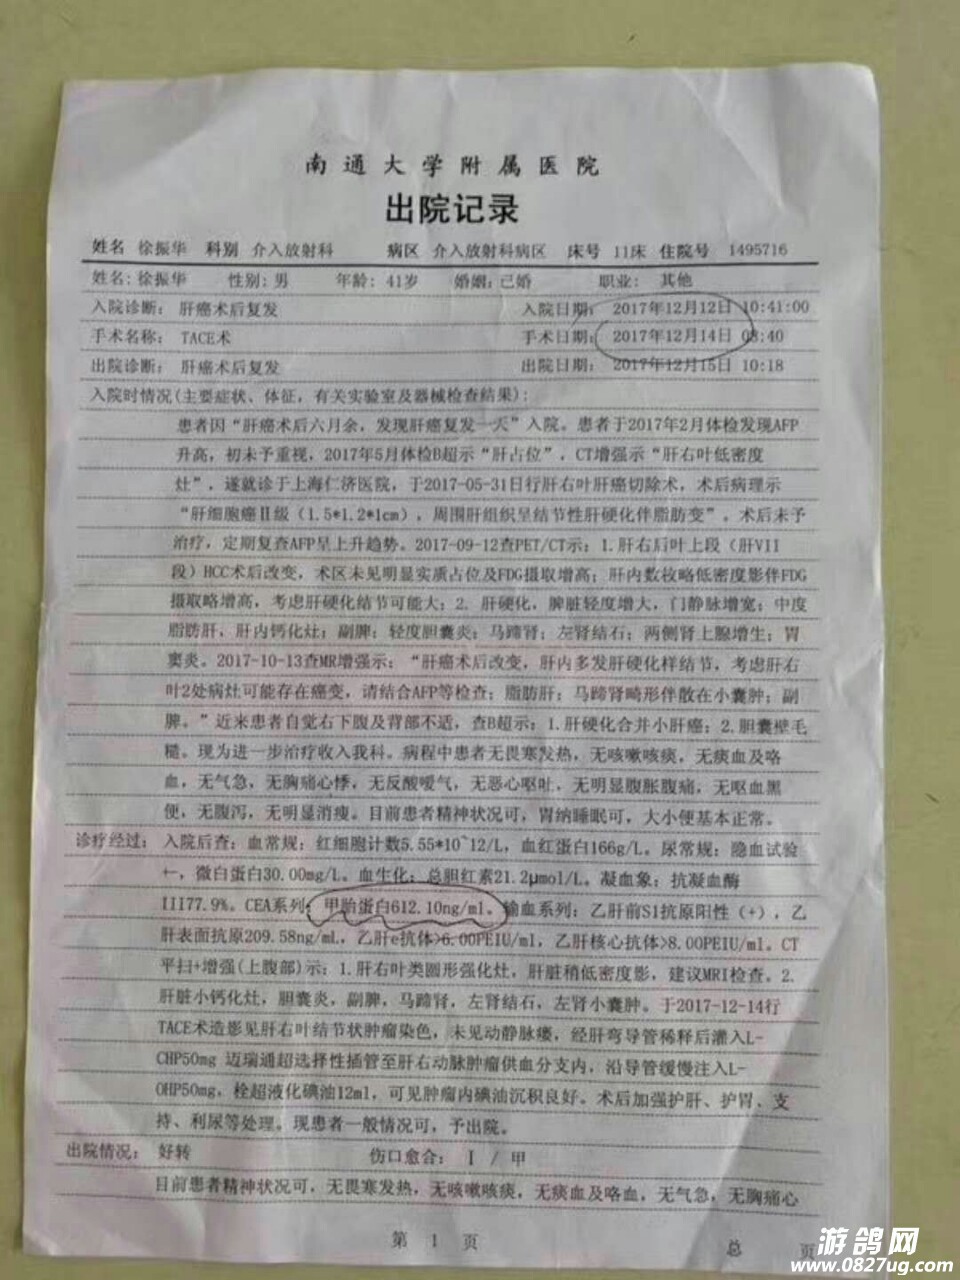 南通大学附属医院
出院记录
姓名 徐振华 科别 介入放射科 病区 介入放射科病区 床号 11床 住院号 1495716
姓名: 徐振华 性别: 男 年龄: 41岁 婚姻: 已婚 职业: 其他
入院诊断: 肝癌术后复发 入院日期: 2017年12月12日 10:41:00
手术名称: TACE术 手术日期: 2017年12月14日 08:40
出院诊断: 肝癌术后复发 出院日期: 2017年12月15日 10:18
入院时情况(主要症状、体征，有关实验室及器械检查结果):
患者因“肝癌术后六月余，发现肝癌复发一天”入院。患者于2017年2月体检发现AFP
升高，初未予重视，2017年5月体检B超示“肝占位”，CT增强示“肝右叶低密度
灶”，遂就诊于上海仁济医院，于2017-05-31日行肝右叶肝癌切除术，术后病理示
“肝细胞癌Ⅱ级（1.5*1.2*1cm），周围肝组织呈结节性肝硬化伴脂肪变”。术后未予
治疗，定期复查AFP呈上升趋势。2017-09-12查PET/CT示：1.肝右后叶上段（肝VII
段）HCC术后改变，术区未见明显实质占位及FDG摄取增高；肝内数枚略低密度影伴FDG
摄取略增高，考虑肝硬化结节可能大；2. 肝硬化，脾脏轻度增大，门静脉增宽；中度
脂肪肝、肝内钙化灶；副脾；轻度胆囊炎；马蹄肾；左肾结石；两侧肾上腺增生；胃
窦炎。2017-10-13查MR增强示：“肝癌术后改变，肝内多发肝硬化样结节，考虑肝右
叶2处病灶可能存在癌变，请结合AFP等检查；脂肪肝；马蹄肾畸形伴散在小囊肿；副
脾。”近来患者自觉右下腹及背部不适，查B超示：1.肝硬化合并小肝癌；2.胆囊壁毛
糙。现为进一步治疗收入我科。病程中患者无畏寒发热，无咳嗽咳痰，无痰血及咯
血，无气急，无胸痛心悸，无反酸嗳气，无恶心呕吐，无明显腹胀腹痛，无呕血黑
便，无腹泻，无明显消瘦。目前患者精神状况可，胃纳睡眠可，大小便基本正常。
诊疗经过: 入院后查：血常规：红细胞计数5.55*10^12/L，血红蛋白166g/L。尿常规：隐血试验
+-，微白蛋白30.00mg/L。血生化：总胆红素21.2μmol/L。凝血象：抗凝血酶
III77.9%。CEA系列：甲胎蛋白612.10ng/ml。输血系列：乙肝前S1抗原阳性（+），乙
肝表面抗原209.58ng/mL，乙肝e抗体>6.00PEIU/ml，乙肝核心抗体>8.00PEIU/ml。CT
平扫+增强(上腹部)示：1.肝右叶类圆形强化灶，肝脏稍低密度影，建议MRI检查。2.
肝脏小钙化灶，胆囊炎，副脾，马蹄肾，左肾结石，左肾小囊肿。于2017-12-14行
TACE术造影见肝右叶结节状肿瘤染色，未见动静脉瘘，经肝弯导管稀释后灌入L-
OHP50mg 迈瑞通超选择性插管至肝右动脉肿瘤供血分支内，沿导管缓慢注入L-
OHP50mg，栓超液化碘油12ml，可见肿瘤内碘油沉积良好。术后加强护肝、护胃、支
持、利尿等处理。现患者一般情况可，予出院。
出院情况: 好转 伤口愈合: Ⅰ / 甲
目前患者精神状况可，无畏寒发热，无咳嗽咳痰，无痰血及咯血，无气急，无胸痛心
第 1 页 总 页
游鸽网
www.0827ug.com